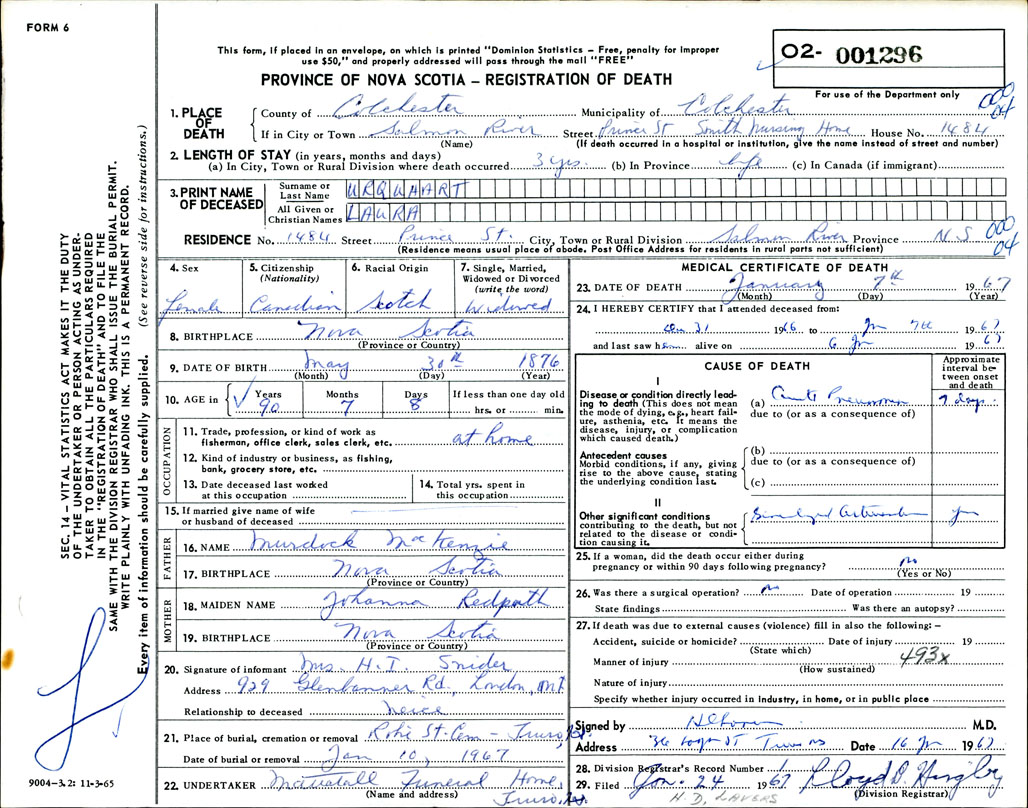 FORM 6
This form, if placed in an envelope, on which is printed "Dominion Statistics – Free, penalty for improper
use $50," and properly addressed will pass through the mail "FREE"
PROVINCE OF NOVA SCOTIA – REGISTRATION OF DEATH
O2- 001296
For use of the Department only
000
04
1. PLACE OF DEATH { County of Colchester Municipality of Colchester
If in City or Town Salmon River Street Prince St Smith Nursing Home House No. 1484
(Name) (If death occurred in a hospital or institution, give the name instead of street and number)
2. LENGTH OF STAY (in years, months and days)
(a) In City, Town or Rural Division where death occurred 3 yrs. (b) In Province life (c) In Canada (if immigrant)
3. PRINT NAME OF DECEASED { Surname or Last Name URQUHART
All Given or Christian Names LAURA
RESIDENCE No. 1484 Street Prince St. City, Town or Rural Division Salmon River Province N.S 000
04
(Residence means usual place of abode. Post Office Address for residents in rural parts not sufficient)
4. Sex Female
5. Citizenship (Nationality) Canadian
6. Racial Origin Scotch
7. Single, Married, Widowed or Divorced (write the word) Widowed
8. BIRTHPLACE Nova Scotia
(Province or Country)
9. DATE OF BIRTH May 30th 1876
(Month) (Day) (Year)
10. AGE in { Years 90 Months 7 Days 8 If less than one day old
hrs. or min.
OCCUPATION
11. Trade, profession, or kind of work as
fisherman, office clerk, sales clerk, etc. at home
12. Kind of industry or business, as fishing,
bank, grocery store, etc.
13. Date deceased last worked
at this occupation
14. Total yrs. spent in
this occupation
15. If married give name of wife
or husband of deceased
FATHER
16. NAME Murdock MacKenzie
17. BIRTHPLACE Nova Scotia
(Province or Country)
MOTHER
18. MAIDEN NAME Johanna Redpath
19. BIRTHPLACE Nova Scotia
(Province or Country)
20. Signature of informant Mrs. H. I. Snider
Address 929 Rd., London,
Relationship to deceased neice
21. Place of burial, cremation or removal Robie St. Cem – Truro,
Date of burial or removal Jan 10, 1967
22. UNDERTAKER Mattatall Funeral Home,
(Name and address) Truro,
MEDICAL CERTIFICATE OF DEATH
23. DATE OF DEATH January 7th 1967
(Month) (Day) (Year)
24. I HEREBY CERTIFY that I attended deceased from:
31 1966 to Jan 7th 1967
and last saw h alive on 6 Jan 1967
CAUSE OF DEATH
Approximate interval between onset and death
I
Disease or condition directly leading to death (This does not mean the mode of dying, e.g., heart failure, asthenia, etc. It means the disease, injury, or complication which caused death.)
(a) Acute Pneumonia 7 days.
due to (or as a consequence of)
Antecedent causes
Morbid conditions, if any, giving rise to the above cause, stating the underlying condition last.
(b)
due to (or as a consequence of)
(c)
II
Other significant conditions
contributing to the death, but not related to the disease or condition causing it.
25. If a woman, did the death occur either during
pregnancy or within 90 days following pregnancy? no
(Yes or No)
26. Was there a surgical operation? no Date of operation 19
State findings Was there an autopsy?
27. If death was due to external causes (violence) fill in also the following: –
Accident, suicide or homicide? Date of injury 19
(State which)
Manner of injury 493x
(How sustained)
Nature of injury
Specify whether injury occurred in industry, in home, or in public place
Signed by M.D.
Address Truro NS Date 16 Jan 1967
28. Division Registrar's Record Number 1
29. Filed Jan. 24 1967 Lloyd D. Hingley
(Division Registrar)
H. D. LAVERS
SEC. 14 – VITAL STATISTICS ACT MAKES IT THE DUTY
OF THE UNDERTAKER OR PERSON ACTING AS UNDER-
TAKER TO OBTAIN ALL THE PARTICULARS REQUIRED
IN THE "REGISTRATION OF DEATH" AND TO FILE THE
SAME WITH THE DIVISION REGISTRAR WHO SHALL ISSUE THE BURIAL PERMIT.
WRITE PLAINLY WITH UNFADING INK. THIS IS A PERMANENT RECORD.
Every item of information should be carefully supplied. (See reverse side for instructions.)
9004–3.2: 11-3-65